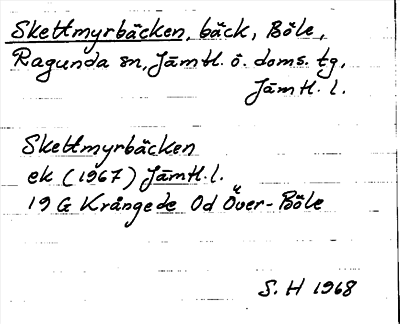 Skettmyrbäcken, bäck, Böle,
Ragunda sn, Jämtl. ö. doms. tg,
Jämtl. l.
Skettmyrbäcken
ek (1967) Jämtl. l.
19 G Krångede Od Över-Böle
S. H 1968